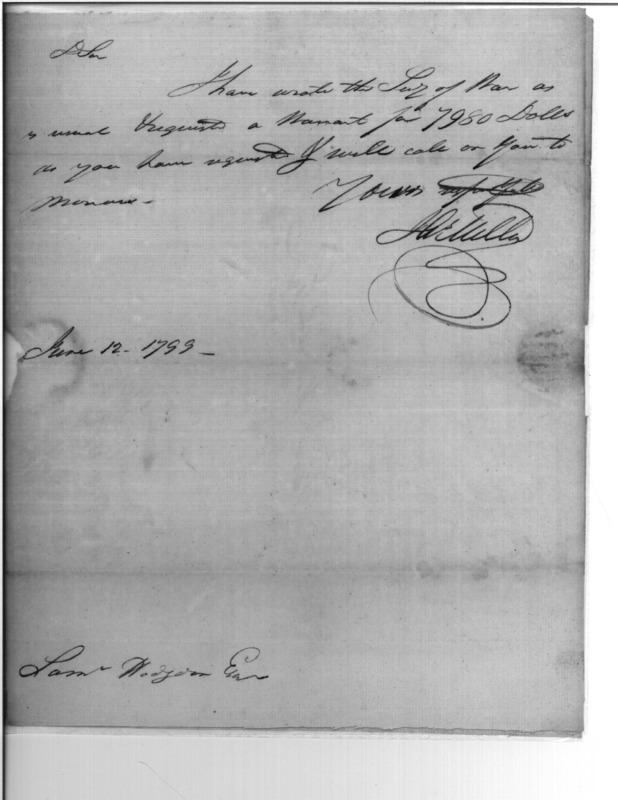 D Sir
I have wrote the Secy of War as
is usual & requested a Warrant for 7980 Dolls
as you have requested I will call on you to
morrow -
Yours
June 12 - 1799 -
Saml Hodgdon Esqr